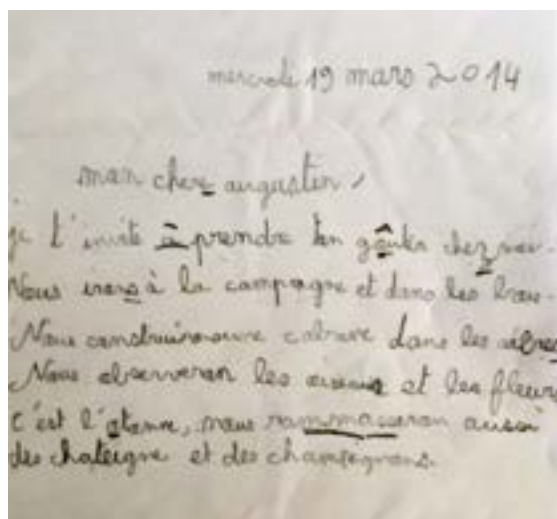 mercredi 19 mars 2014
mon cher augustin,
je t'invite à prendre ton goûter chez moi.
Nous irons à la campagne et dans les
Nous cabane dans les
Nous observeron les oiseaux et les fleurs
C'est l'atonne, nous rammasseron aussi
des chateigne et des champignons.